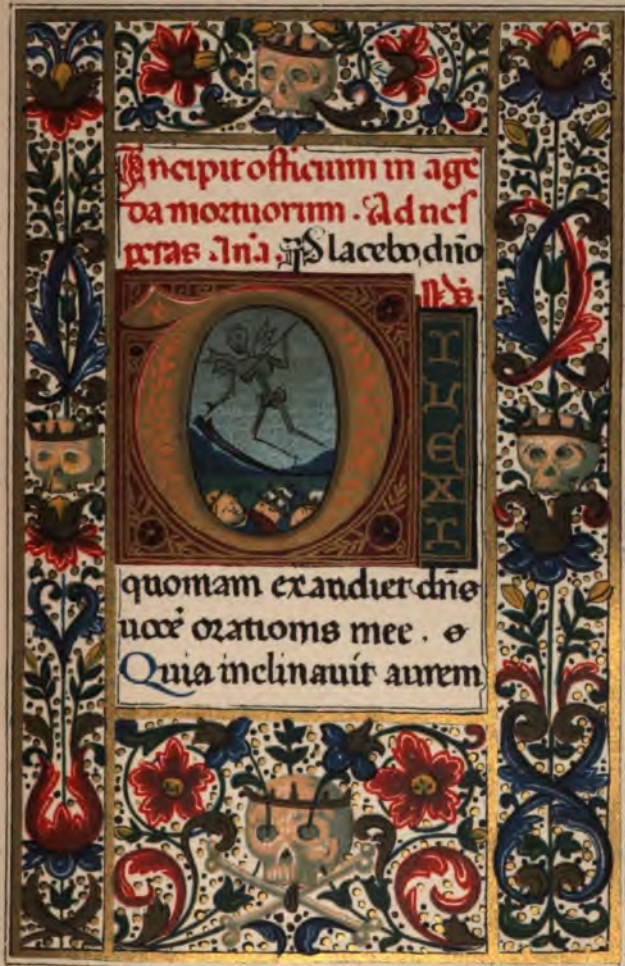 Incipit officium in agē
da mortuorum . Ad ues
peras . Anā. Placebo dn̄o
Ps.
DILEXI
quoniam exaudiet dn̄s
uocē orationis mee .
Quia inclinauit aurem